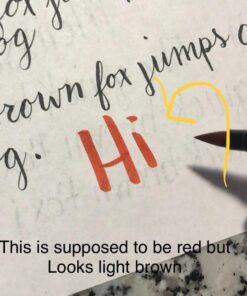 fox ju
og
brown fox jumps o
g. Hi
This is supposed to be red but
Looks light brown